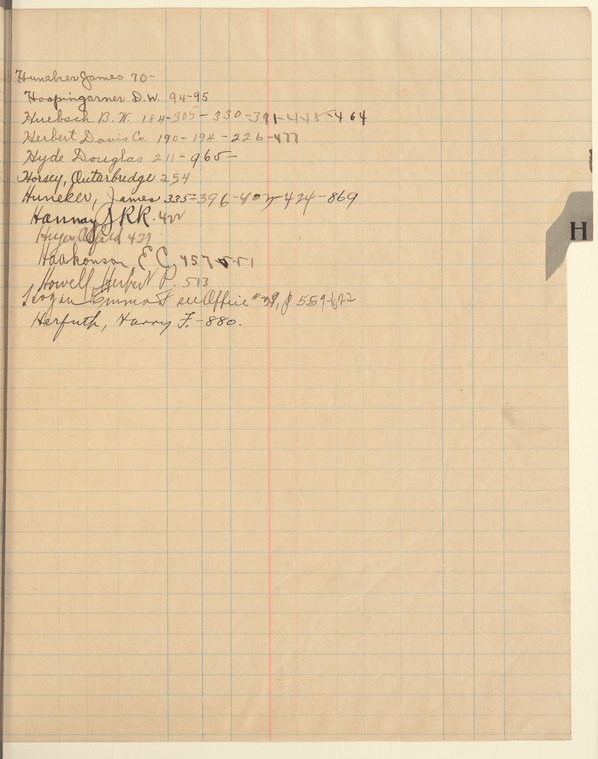 Huneker James 70-
Hoopingarner D.W. 94-95
Huebsch B.W. 184-305-330-391-448-464
Herbert Davis Co. 190-194-226-477
Hyde Douglas 211-965-
Horsey, Outerbridge 254
Huneker, James 335-396-402-424-869
Hannay J RR. 422
Alfred 439
Haakonson E C. 457
Howell Herbert P. 513
Hogan Emma F see Office #29, p 559-622
Herfuth, Harry F. -880.
H